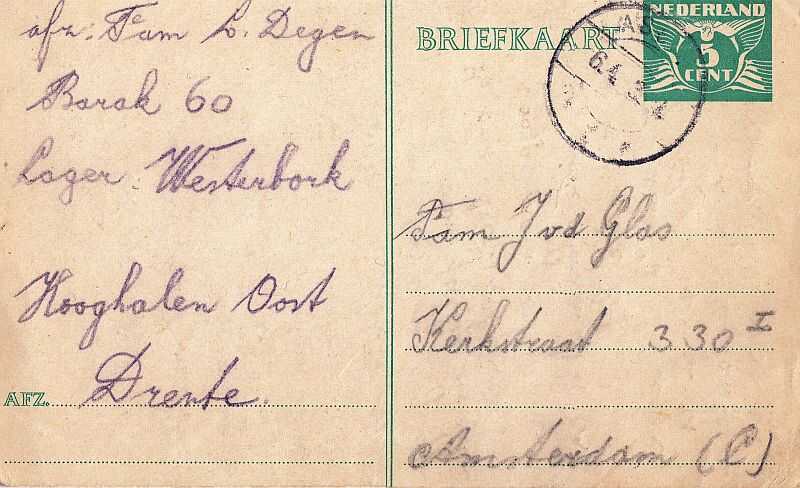 afz. Fam L. Degen
Barak 60
Lager Westerbork
Hooghalen Oost
Drente.
AFZ.
BRIEFKAART
NEDERLAND
5
CENT
Fam J vd Glas
Kerkstraat 330 I
Amsterdam (C)